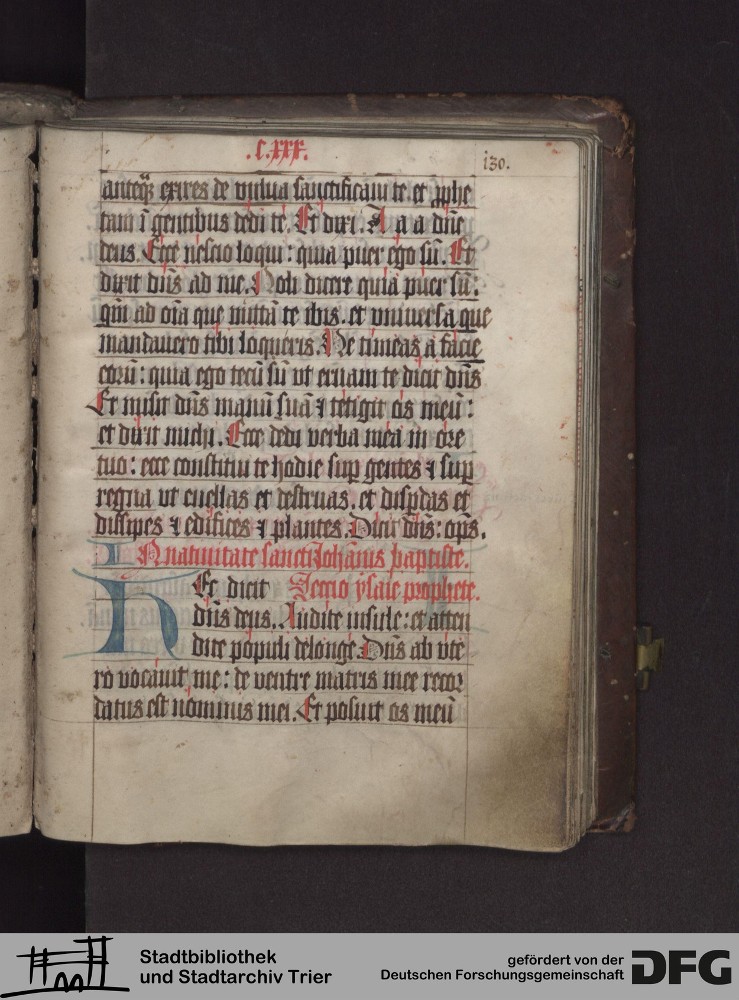 .C.xxx.
130.
anteq̄ʒ exires de vulua sanctificaui te. et ꝓphe
tam ī gentibus dedi te. Et dixi. A a a dn̄e
deus. Ecce nescio loqui: quia puer ego sū. Et
dixit dn̄s ad me. Noli dicere quia puer sū:
qm̄ ad oīa que mittā te ibis. et vniuersa que
mandauero tibi loqueris. Ne timeas a facie
eorū: quia ego tecū sū vt eruam te dicit dn̄s
Et misit dn̄s manū suā ⁊ tetigit os meū:
et dixit michi. Ecce dedi verba mea in ore
tuo: ecce constitui te hodie suꝑ gentes ⁊ suꝑ
regna vt euellas et destruas. et disꝑdas et
dissipes ⁊ edifices ⁊ plantes. Dicit dn̄s: ops̄.
In natiuitate sancti Johānis baptiste.
Hec dicit Lectio ysaie prophete.
dn̄s deus. Audite insule: et atten
dite populi delonge. Dn̄s ab vte
ro vocauit me: de ventre matris mee recor
datus est nominis mei. Et posuit os meū
Stadtbibliothek
und Stadtarchiv Trier
gefördert von der
Deutschen Forschungsgemeinschaft
DFG